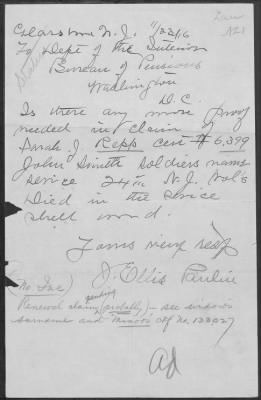 N.J. 1/22/16
To Dept of the Interior
Bureau of Pensions
Washington
D.C.
Is there any more proof
needed in claim of
Sarah J Repp cert # 6,399
John Smith soldiers name
service 24th N.J. Vol's
Died in the service
shell wound.
Yours very resp
J. Ellis
(No Inc)
pending
Renewal claim (probally) - see widow's
surname and Minors' ctf no. 122927